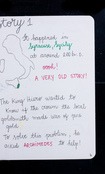 Story 1
It happened in
Syracuse, Sicily
at around 250 b.c.
wooh!
A VERY OLD STORY!
The King Hiero wanted to
know if the crown the local
goldsmith made was of pure
gold.
To solve this problem, he
asked ARCHIMEDES to help!